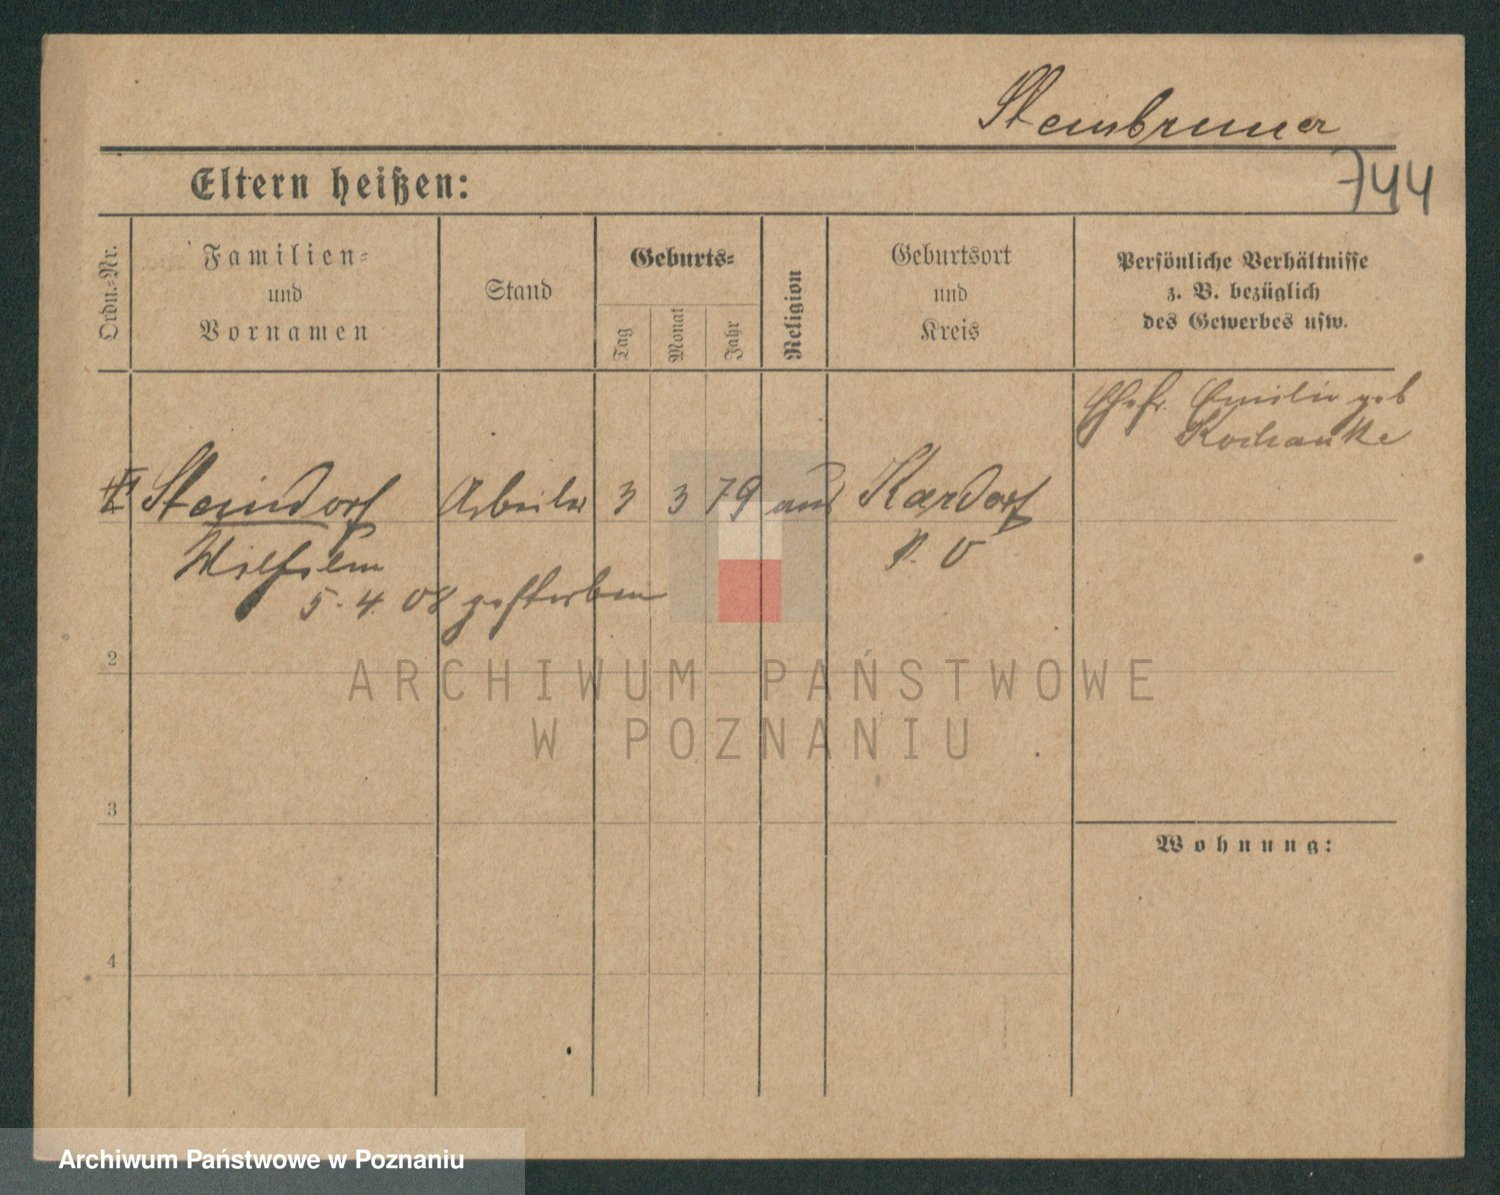 Steinbruner
744
Eltern heißen:
Ordn.=Nr.
Familien=
und
Vornamen
Stand
Geburts=
Tag
Monat
Jahr
Religion
Geburtsort
und
Kreis
Persönliche Verhältnisse
z. B. bezüglich
des Gewerbes usw.
Ehefr. Emilie geb
Kochanke
Steindorf Arbeiter 3 3 79
Wilhelm
5. 4. 08 gestorben
2
3
4
Wohnung:
ARCHIWUM PAŃSTWOWE
W POZNANIU
Archiwum Państwowe w Poznaniu